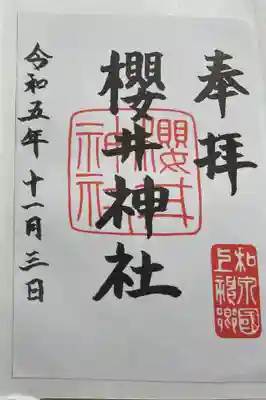 奉拝
櫻井神社
令和五年十一月三日
櫻井
神社
和泉國
上神郷